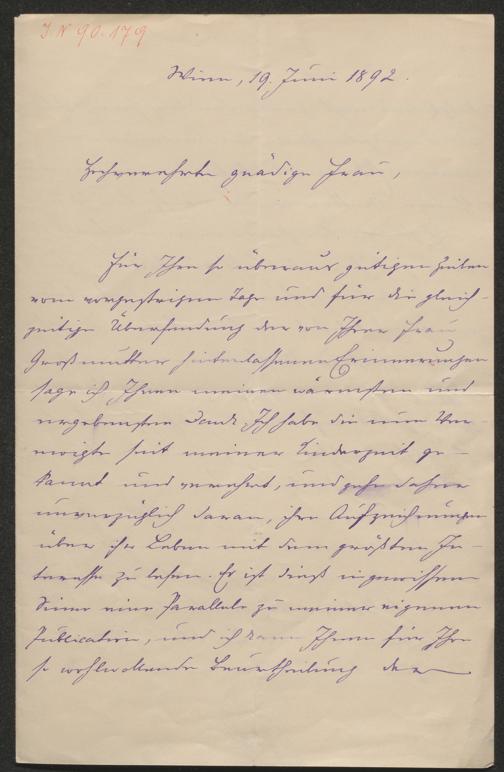 J N 90.179
Wien, 19. Juni 1892.
Hochverehrte gnädige Frau,
Für Ihre so überaus gütigen Zeilen
vom vorgestrigen Tage und für die gleich-
zeitige Übersendung der von Ihrer Frau
Großmutter hinterlassenen Erinnerungen
sage ich Ihnen meinen wärmsten und
ergebensten Dank. Ich habe die nun Ver-
ewigte seit meiner Kinderzeit ge-
kannt und verehrt, und gehe daher
unverzüglich daran, ihre Aufzeichnungen
über ihr Leben mit dem größten In-
teresse zu lesen. Es ist dieß in gewissem
Sinne eine Parallele zu meiner eigenen
Publication, und ich kann Ihnen für Ihre
so wohlwollende Beurtheilung der